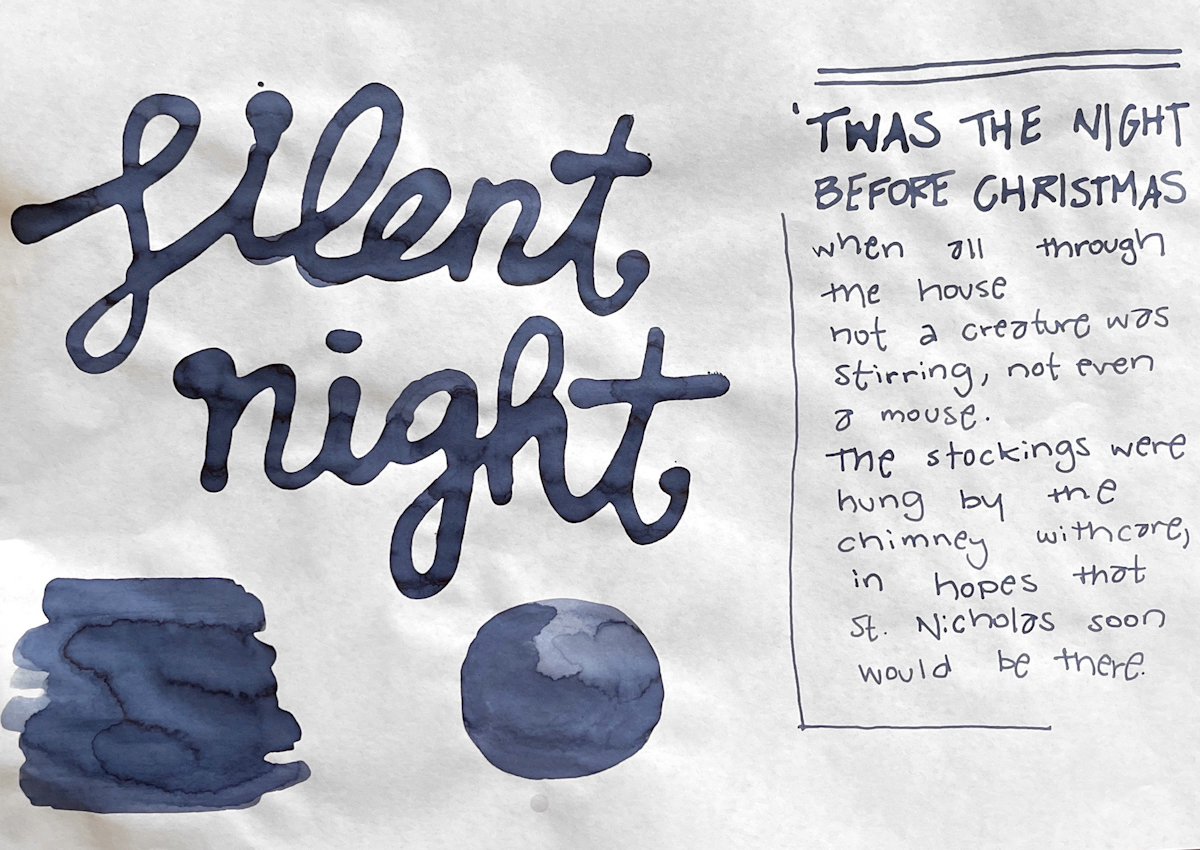 silent
night
'TWAS THE NIGHT
BEFORE CHRISTMAS
when all through
the house
not a creature was
stirring, not even
a mouse.
The stockings were
hung by the
chimney with care,
in hopes that
St. Nicholas soon
would be there.